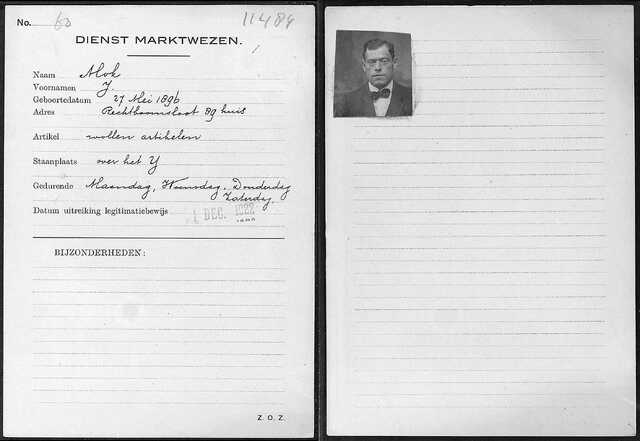 No. 60 11484
DIENST MARKTWEZEN.
Naam Alok
Voornamen J.
Geboortedatum 27 Mei 1896
Adres Rechtboomsloot 89 huis
Artikel wollen artikelen
Staanplaats over het Y
Gedurende Maandag, Woensdag, Donderdag
Zaterdag.
Datum uitreiking legitimatiebewijs 1 DEC. 1922
BIJZONDERHEDEN:
Z. O. Z.